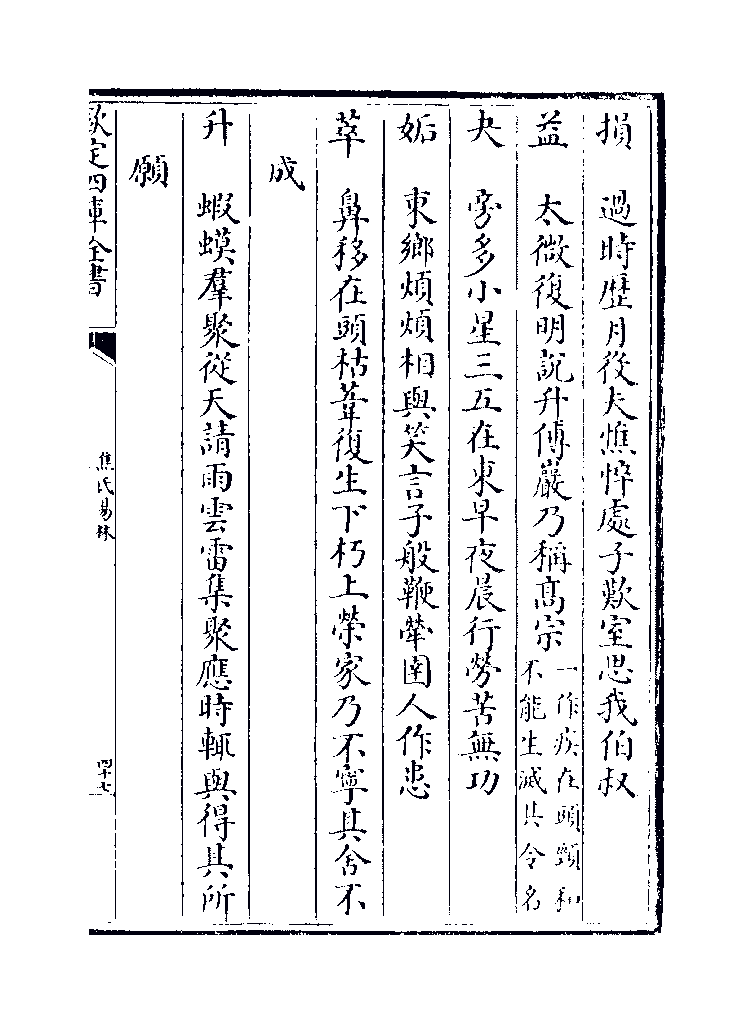 損　過時歴月役夫憔悴處子歎室思我伯叔
益　太微復明說升傅巖乃稱髙宗一作疾在頭頸和不能生滅其令名
夬　旁多小星三五在東早夜晨行勞苦無功
姤　東鄉煩煩相與笑言子般鞭犖圉人作患
萃　鼻移在頭枯葦復生下朽上榮家乃不寧其舍不
成
升　蝦蟆羣聚從天請雨雲雷集聚應時輒與得其所
願
欽定四庫全書
焦氏易林
四十七